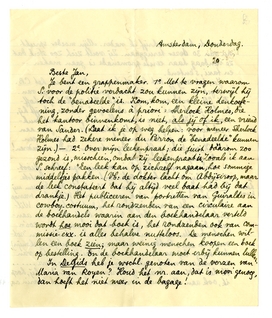 Amsterdam, Donderdag.
Beste Jan,
Je bent een grappenmaker. 1° Met te vragen waarom
P. voor de politie verdacht zou kunnen zijn, terwijl hij
toch de benadeelde is. Kom, kom, een kleine denkoefe-
ning, zonder gevoelens à priori: Sherlock Holmes, die
het kantoor binnenkomt, is niet, als jij of ik, een vriend
van Sander. (Laat ik je op weg helpen: voor meneer Sherlock
Holmes had zeker meneer Perron de benadeelde kunnen
zijn) — 2° Over mijn leekenpraat; die juist daarom zoo
gezond is, misschien, omdat zij leekenpraat is, zooals ik aan
P. schreef. Een leek kan op zekere magen, bij sommige
middeltjes pakken
de leek constateert dat hij altijd veel baat had bij dat
drankje). Het publiceeren van portretten van Guiraldes in
cowboy-costuum, het rondzenden van een circulaire aan
de boekhandels waarin aan den boekhandelaar verteld
wordt hoe mooi dat boek is, het rondzenden ook van com-
missie-exx. is alles behalve nutteloos. Ze menschen wil-
len een boek zien; maar weinig menschen koopen een boek
op bestelling. En de boekhandelaar moet erbij kunnen
In België is het wèl genoten van de verzen van
Maria van Royen? Houd het nr. aan, dat is mooi genoeg,
dan hoeft het niet mee in de bagage!